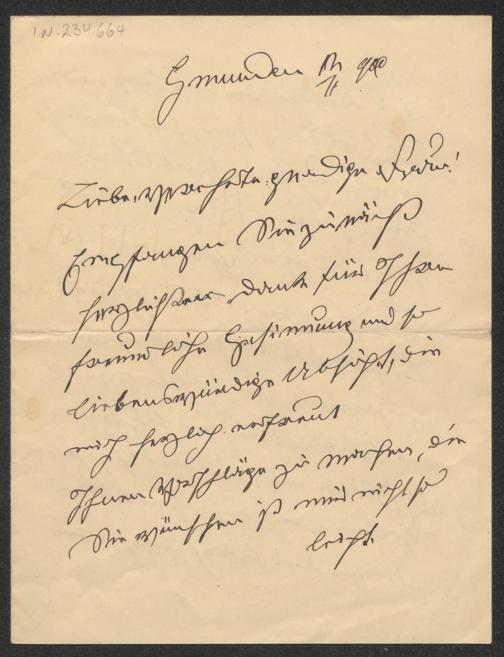 I.N. 234.664
Gmunden 900
Liebe, verehrte, gnädige Frau!
Empfangen Sie zunächst
herzlichsten Dank für Ihre
freundliche Gesinnung und so
liebenswürdige Absicht, die
mich herzlich erfreut
Ihnen Vorschläge zu machen, die
Sie wünschen ist mir nicht so
leicht.